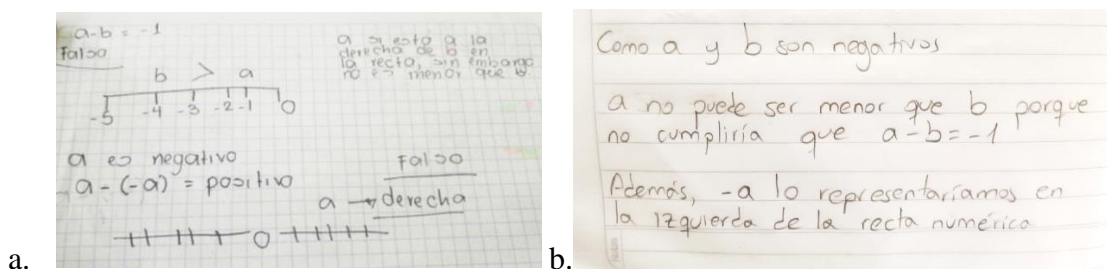 a-b = -1
Falso
a si esta a la
derecha de b en
la recta, sin embargo
no es menor que b
b > a
-5 -4 -3 -2 -1 0
a es negativo
a - (-a) = positivo
Falso
a → derecha
0
a.
Como a y b son negativos
a no puede ser menor que b porque
no cumpliría que a-b=-1
Además, -a lo representaríamos en
la izquierda de la recta numérica
b.